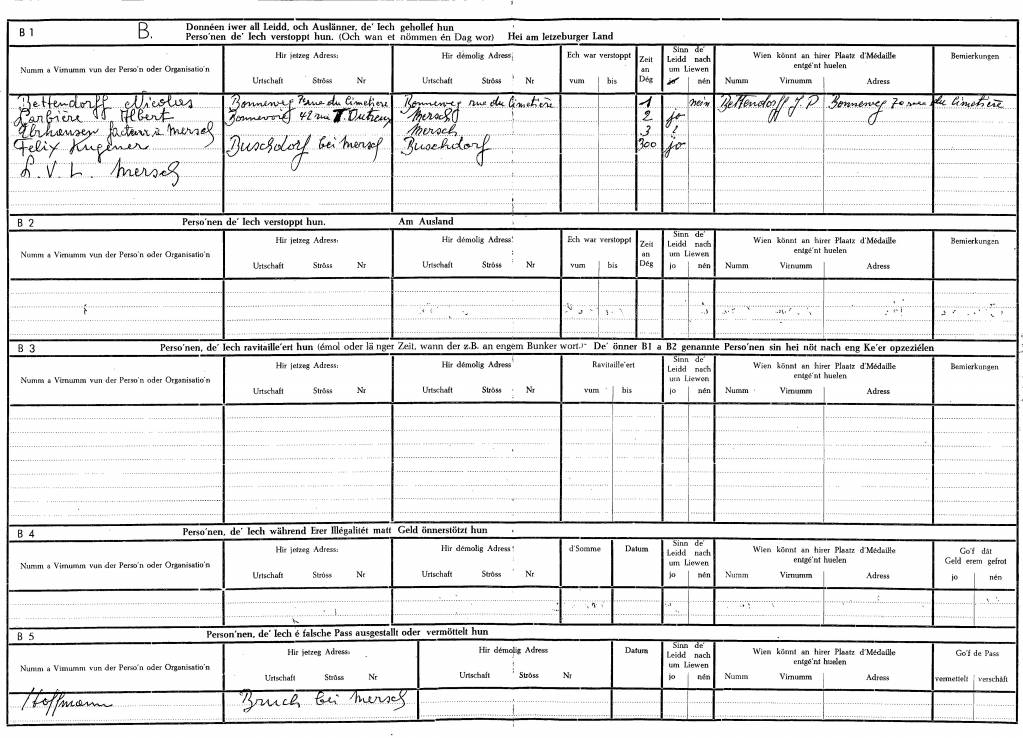 B 1 B. Donnéen iwer all Leidd, och Auslänner, de' Iech gehollef hun
Perso'nen de' Iech verstoppt hun. (Och wan et nömmen én Dag wor) Hei am letzeburger Land
Numm a Virnumm vun der Perso'n oder Organisatio'n
Hir jetzeg Adress: Urtschaft Ströss Nr
Hir démolig Adress: Urtschaft Ströss Nr
Ech war verstoppt vum bis
Zeit an Dég
Sinn de' Leidd nach um Liewen jo nén
Wien könnt an hirer Plaatz d'Médaille entgé'nt huelen Numm Virnumm Adress
Bemierkungen
Bettendorff Nicolas Bonneweg 70 rue du Cimetière Bonneweg rue du Cimetière 1 nein Bettendorff J. P Bonneweg 70 rue du Cimetière
Albert 42 rue Mersch 2 jo
facteur à Mersch Mersch 3 ?
Felix Kugener Buschdorf bei Mersch Buschdorf 300 jo
L. V. L. Mersch
B 2 Perso'nen de' Iech verstoppt hun. Am Ausland
Numm a Virnumm vun der Perso'n oder Organisatio'n
Hir jetzeg Adress: Urtschaft Ströss Nr
Hir démolig Adress: Urtschaft Ströss Nr
Ech war verstoppt vum bis
Zeit an Dég
Sinn de' Leidd nach um Liewen jo nén
Wien könnt an hirer Plaatz d'Médaille entgé'nt huelen Numm Virnumm Adress
Bemierkungen
B 3 Perso'nen, de' Iech ravitaille'ert hun (émol oder länger Zeit, wann der z.B. an engem Bunker wort.)- De' önner B1 a B2 genannte Perso'nen sin hei nöt nach eng Ke'er opzeziélen
Numm a Virnumm vun der Perso'n oder Organisatio'n
Hir jetzeg Adress: Urtschaft Ströss Nr
Hir démolig Adress: Urtschaft Ströss Nr
Ravitaille'ert vum bis
Sinn de' Leidd nach um Liewen jo nén
Wien könnt an hirer Plaatz d'Médaille entgé'nt huelen Numm Virnumm Adress
Bemierkungen
B 4 Perso'nen, de' Iech während Erer Illégalitét matt Geld önnerstötzt hun
Numm a Virnumm vun der Perso'n oder Organisatio'n
Hir jetzeg Adress: Urtschaft Ströss Nr
Hir démolig Adress: Urtschaft Ströss Nr
d'Somme
Datum
Sinn de' Leidd nach um Liewen jo nén
Wien könnt an hirer Plaatz d'Médaille entgé'nt huelen Numm Virnumm Adress
Go'f dät Geld erem gefrot jo nén
B 5 Person'nen, de' Iech é falsche Pass ausgestallt oder vermöttelt hun
Numm a Virnumm vun der Perso'n oder Organisatio'n
Hir jetzeg Adress: Urtschaft Ströss Nr
Hir démolig Adress Urtschaft Ströss Nr
Datum
Sinn de' Leidd nach um Liewen jo nén
Wien könnt an hirer Plaatz d'Médaille entgé'nt huelen Numm Virnumm Adress
Go'f de Pass vermettelt verschäft
Hoffmann Bruch bei Mersch